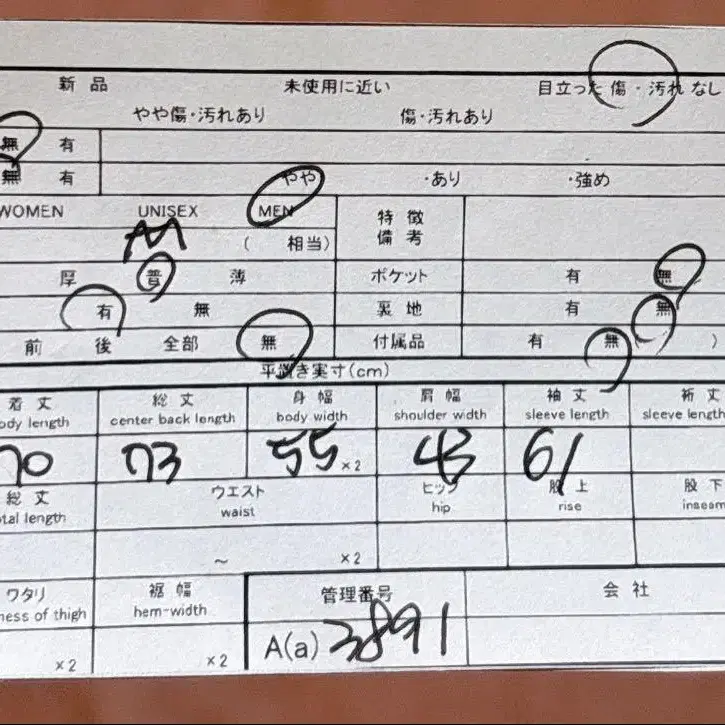 新品 未使用に近い 目立った傷・汚れなし
やや傷・汚れあり 傷・汚れあり
無 有
無 有 やや ・あり ・強め
WOMEN UNISEX MEN 特徴
備考
M ( 相当)
厚 普 薄 ポケット 有 無
有 無 裏地 有 無
前 後 全部 無 付属品 有 無 )
平置き実寸(cm)
着丈 総丈 身幅 肩幅 袖丈 裄丈
body length center back length body width shoulder width sleeve length sleeve length
70 73 55 ×2 43 61
総丈 ウエスト ヒップ 股上 股下
total length waist hip rise inseam
~ ×2
ワタリ 裾幅 管理番号 会社
ness of thigh hem-width
×2 ×2 A(a) 3891